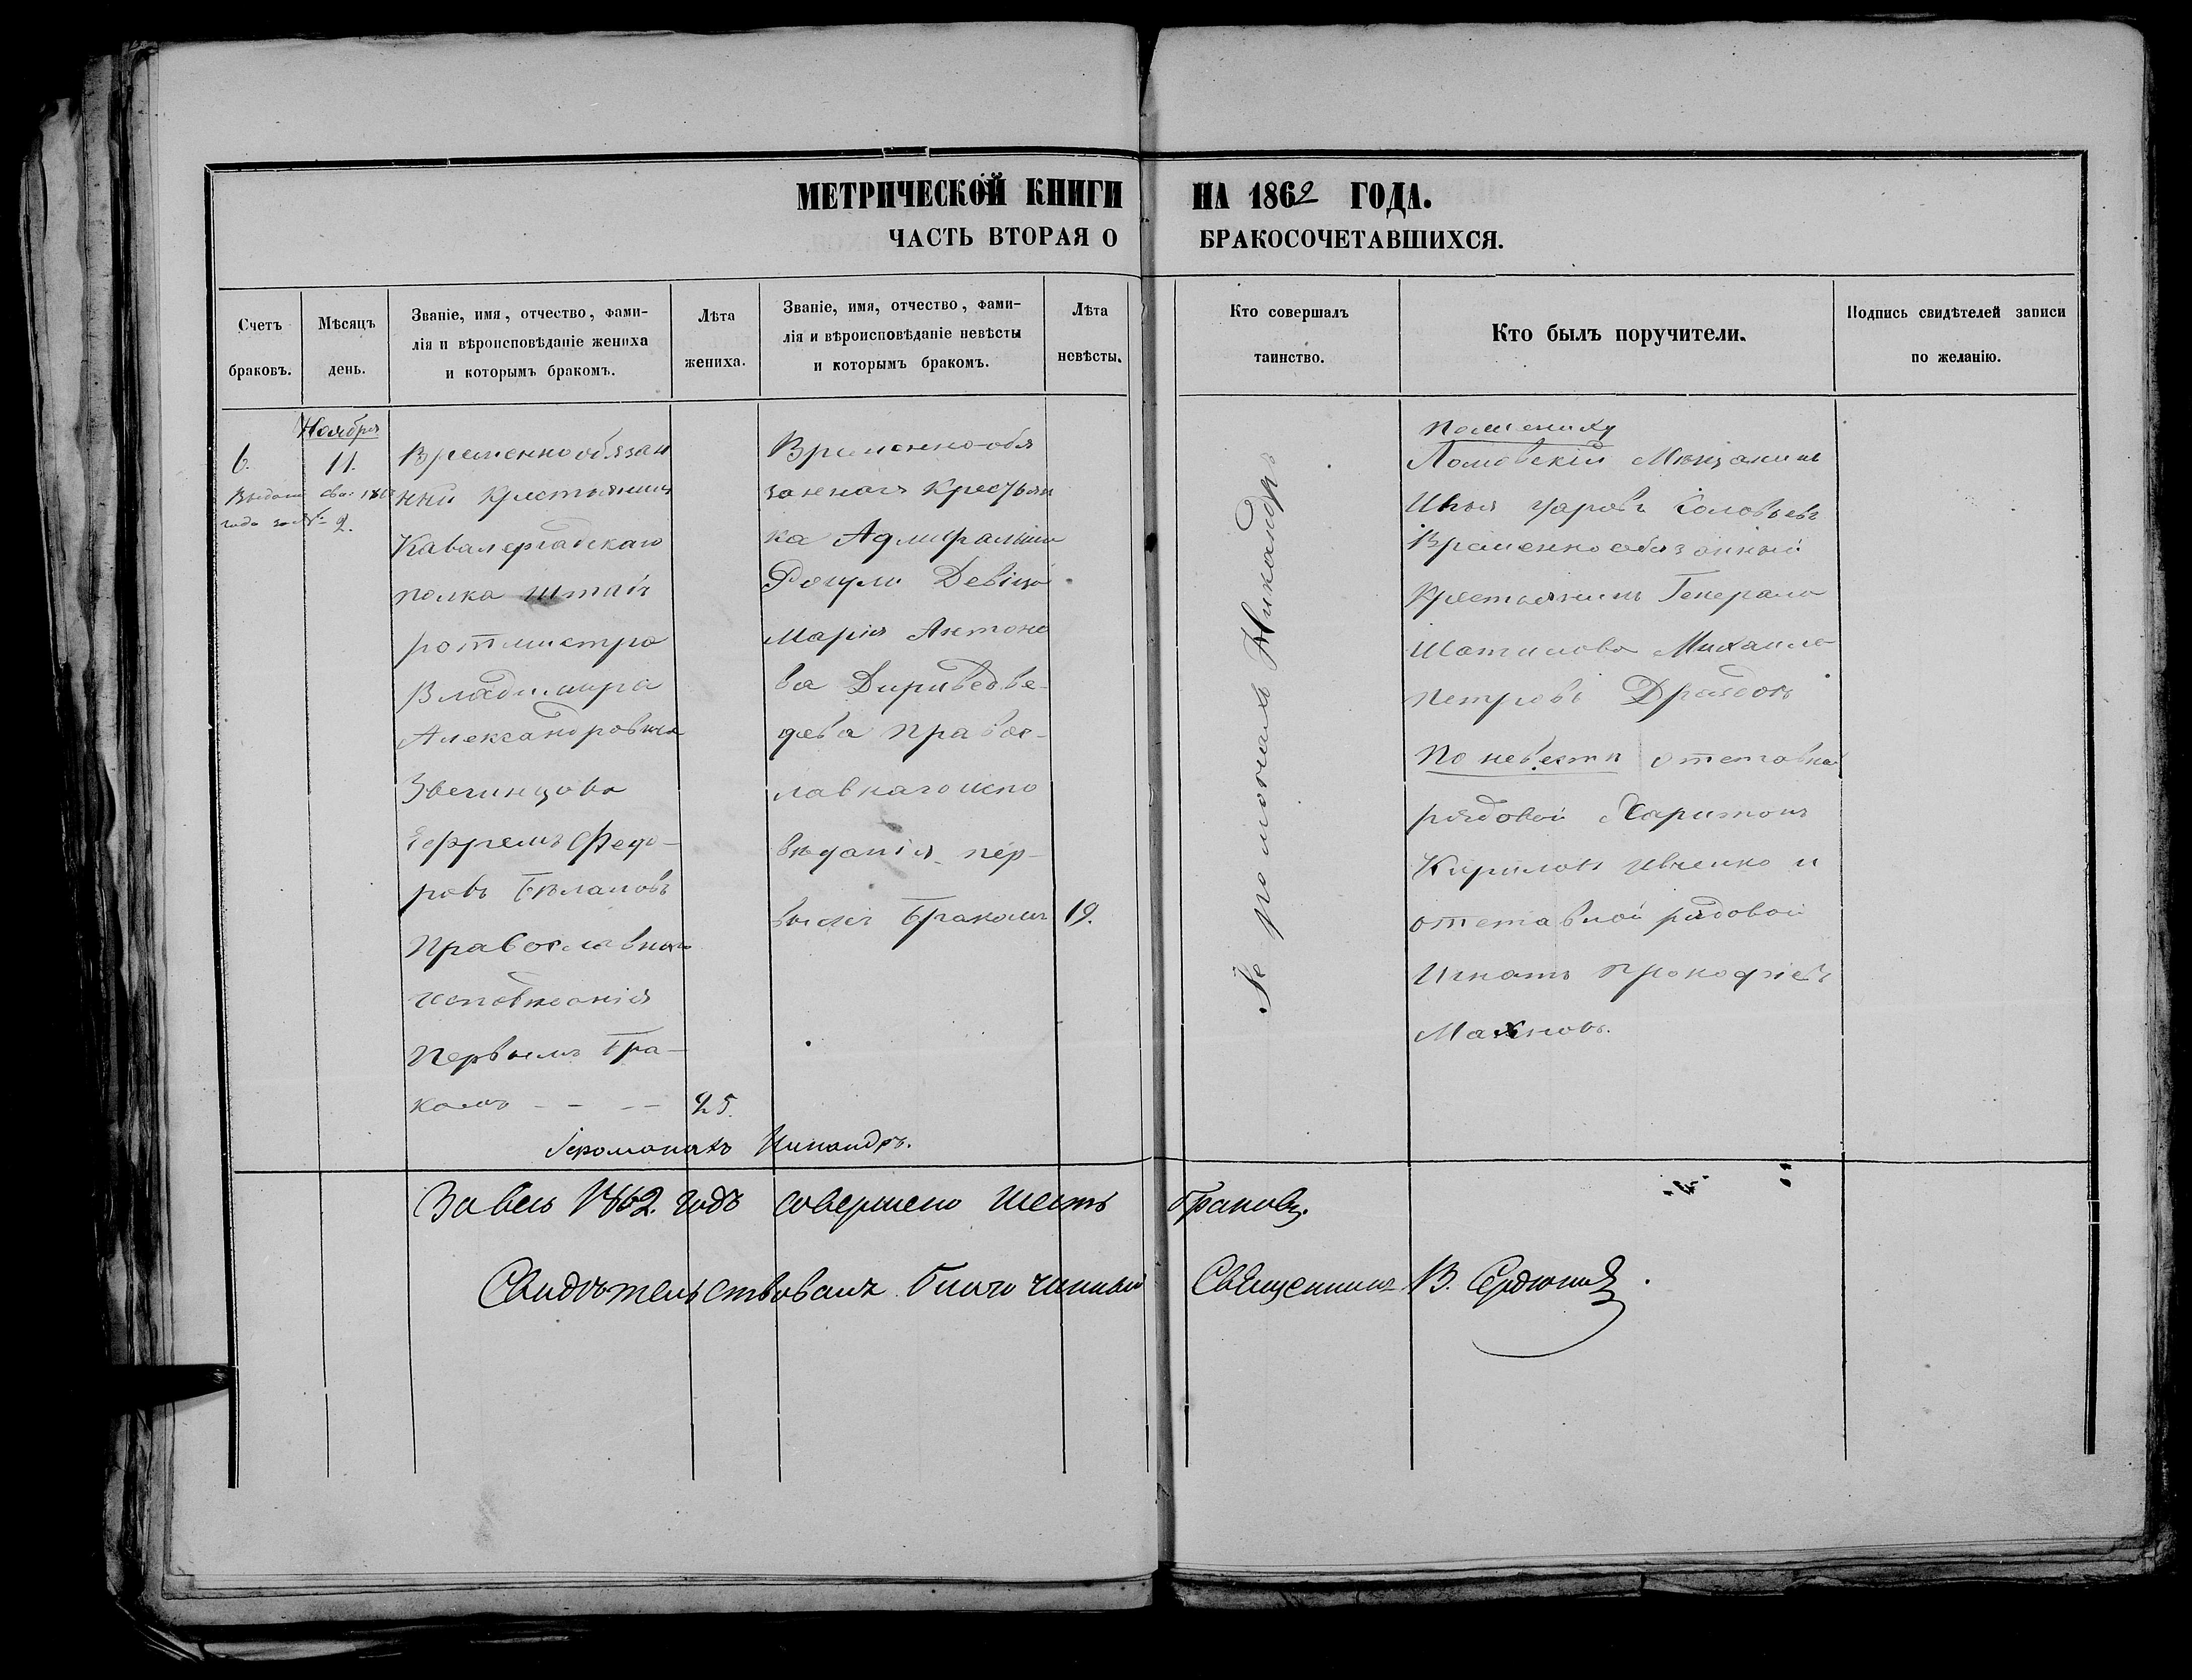 МЕТРИЧЕСКОЙ КНИГИ НА 1862 ГОДА.
ЧАСТЬ ВТОРАЯ О БРАКОСОЧЕТАВШИХСЯ.
Счетъ
браковъ.
Мѣсяцъ
день.
Званіе, имя, отчество, фами-
лія и вѣроисповѣданіе жениха
и которымъ бракомъ.
Лѣта
жениха.
Званіе, имя, отчество, фами-
лія и вѣроисповѣданіе невѣсты
и которымъ бракомъ.
Лѣта
невѣсты.
Кто совершалъ
таинство.
Кто былъ поручители.
Подпись свидѣтелей записи
по желанію.
Ноября
6.
11.
2.
Временнообязан
ный Крестьянинъ
Кавалергадскаго
полка штапъ
ротмистра
Владимира
Александровича
Звегинцова
Ефремъ Федо-
ровъ Бѣламовъ
Православнаго
исповѣданія
Первымъ бра-
комъ - - -
25.
Временно-обя
заенная Крестьян
ка Адмиральши
Рогули Девица
Мария Антоно
ва
Правос-
лавнаго испо
вѣданія пер-
вымъ бракомъ
19.
Іеромонахъ Никандръ
По жениху
Ломовскій Мѣщанинъ
Илья Соловьевъ
Временно обязанный
Крестьянинъ Генерала
Шатилова Михаила
Петровъ
По невести отставной
рядовой Харитонъ
Кириловъ Ивченко и
отставной рядовой
Игнатъ Прокофіевъ
Махновъ.
Іеромонахъ Никандръ.
За весь 1862. годъ совершено шесть браковъ.
Свидѣтельствовалъ благочинный Священникъ В. Сердюков